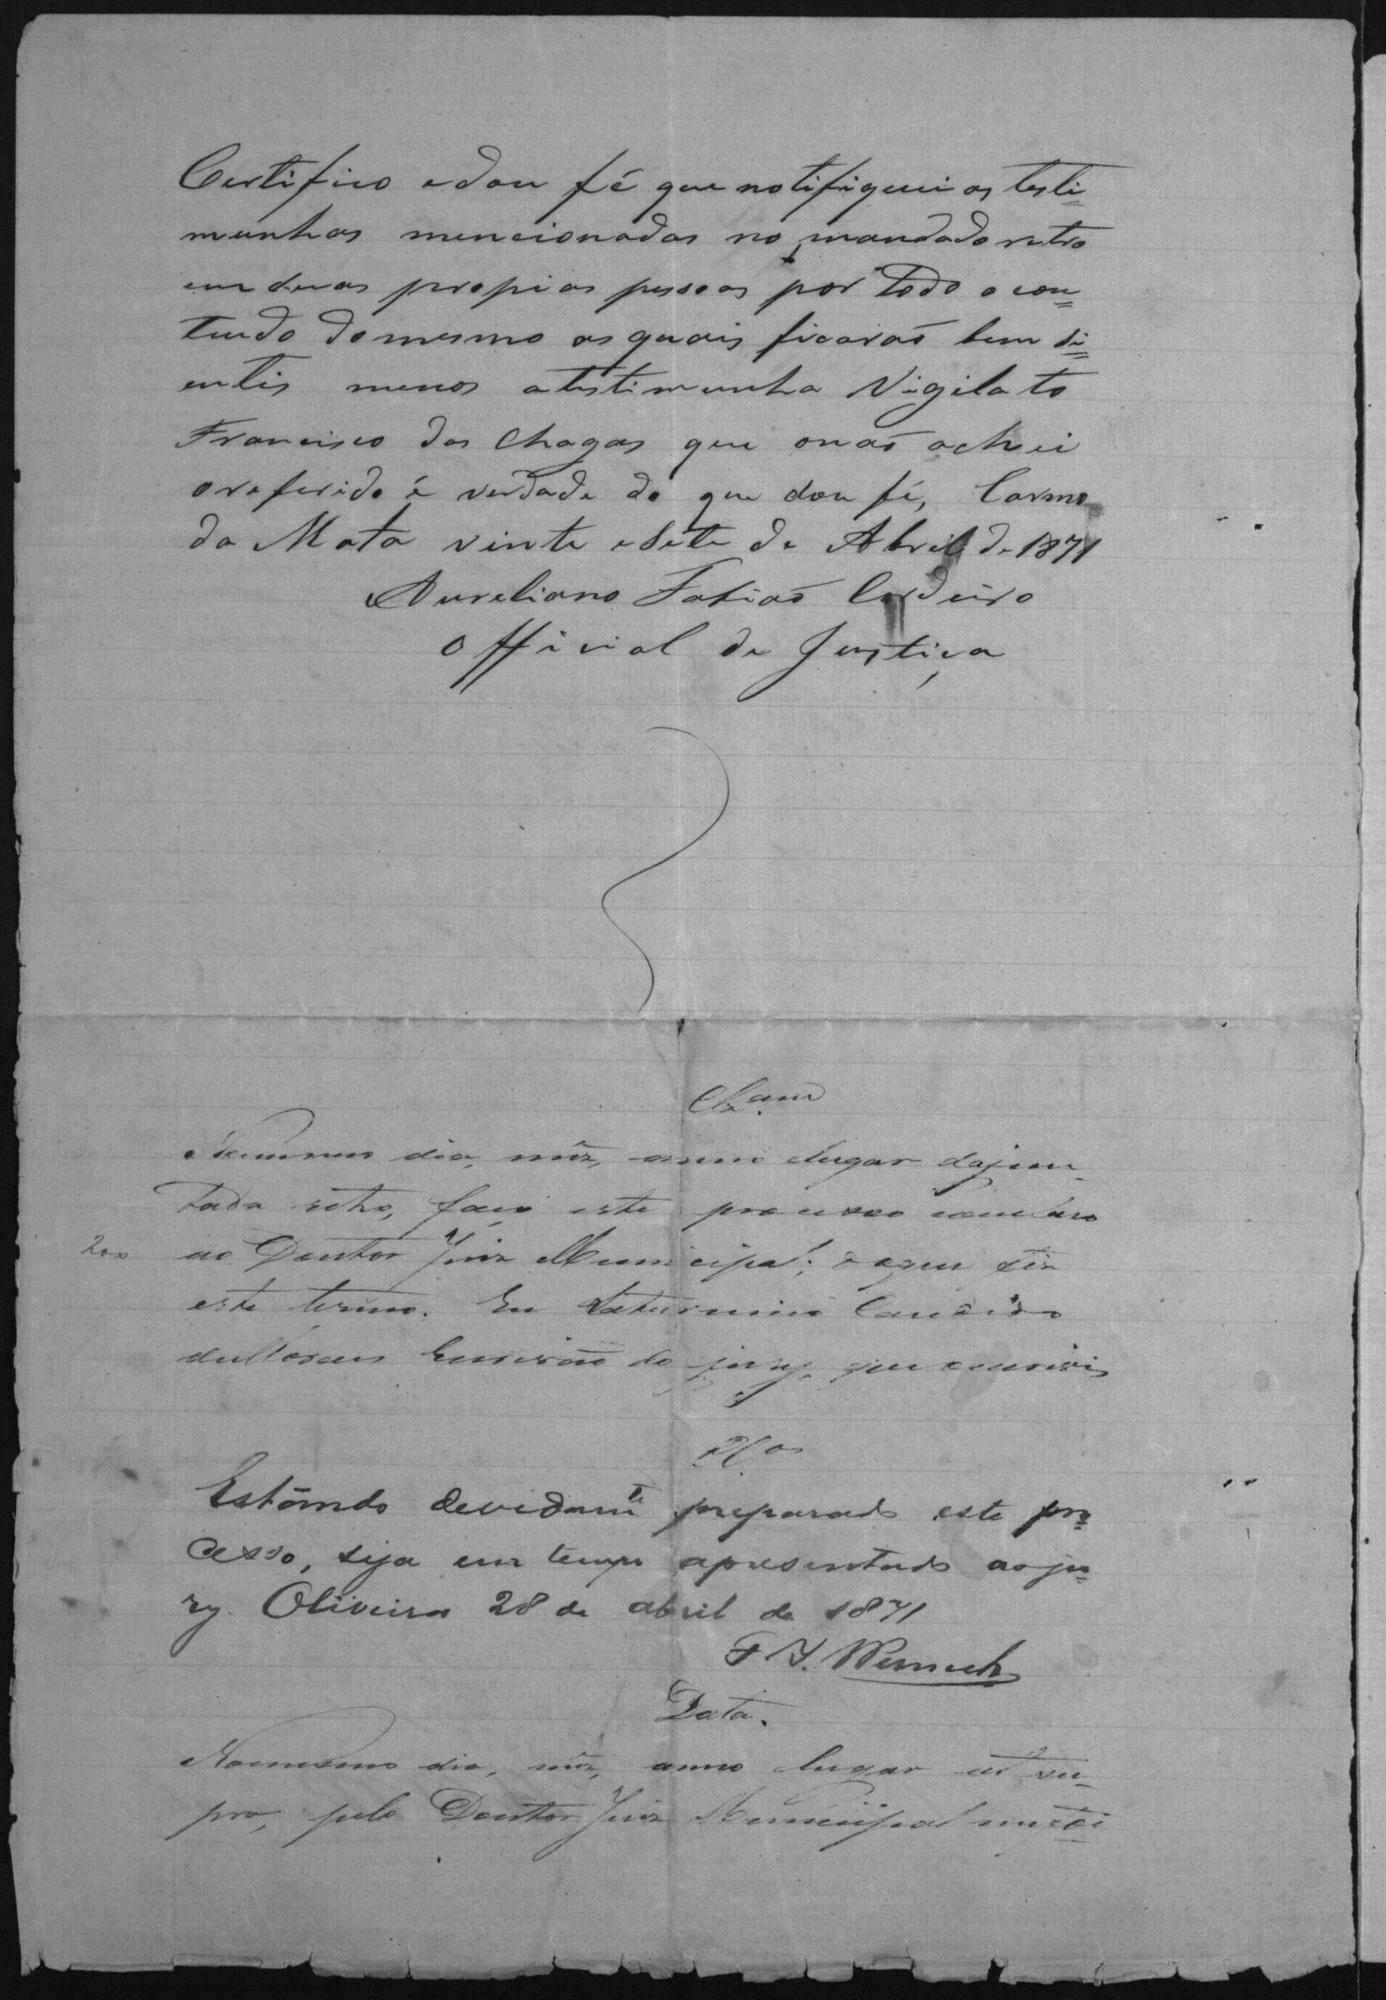 Certifico e dou fé que notifiquei as teste=
munhas mencionadas no mandado retro
em suas propias pessoas por todo o con=
teudo do mesmo as quais ficarão bem si=
entis menos a testimunha Vigilato
Francisco das Chagas que o não achei
o referido é verdade do que dou fé, Carmo
da Mata vinte e sete de Abril de 1871
Aureliano Fabião Cordeiro
Official de Justiça
Clzam
No mesmo dia, mês, anno e lugar da jun-
tada retro, faço este processo concluso
200 ao Doutor Juiz Municipal; do que fiz
este termo. Eu Saturnino Candido
de Moraes Escrivão do jury, que o escrevi
Clos
Estando devidamte preparado este pro=
cesso, seja em tempo apresentado ao ju=
ry. Oliveira 28 de abril de 1871
F. J. Werneck
Data.
No mesmo dia, mês, anno lugar ut su-
pra, pelo Doutor Juiz Municipal